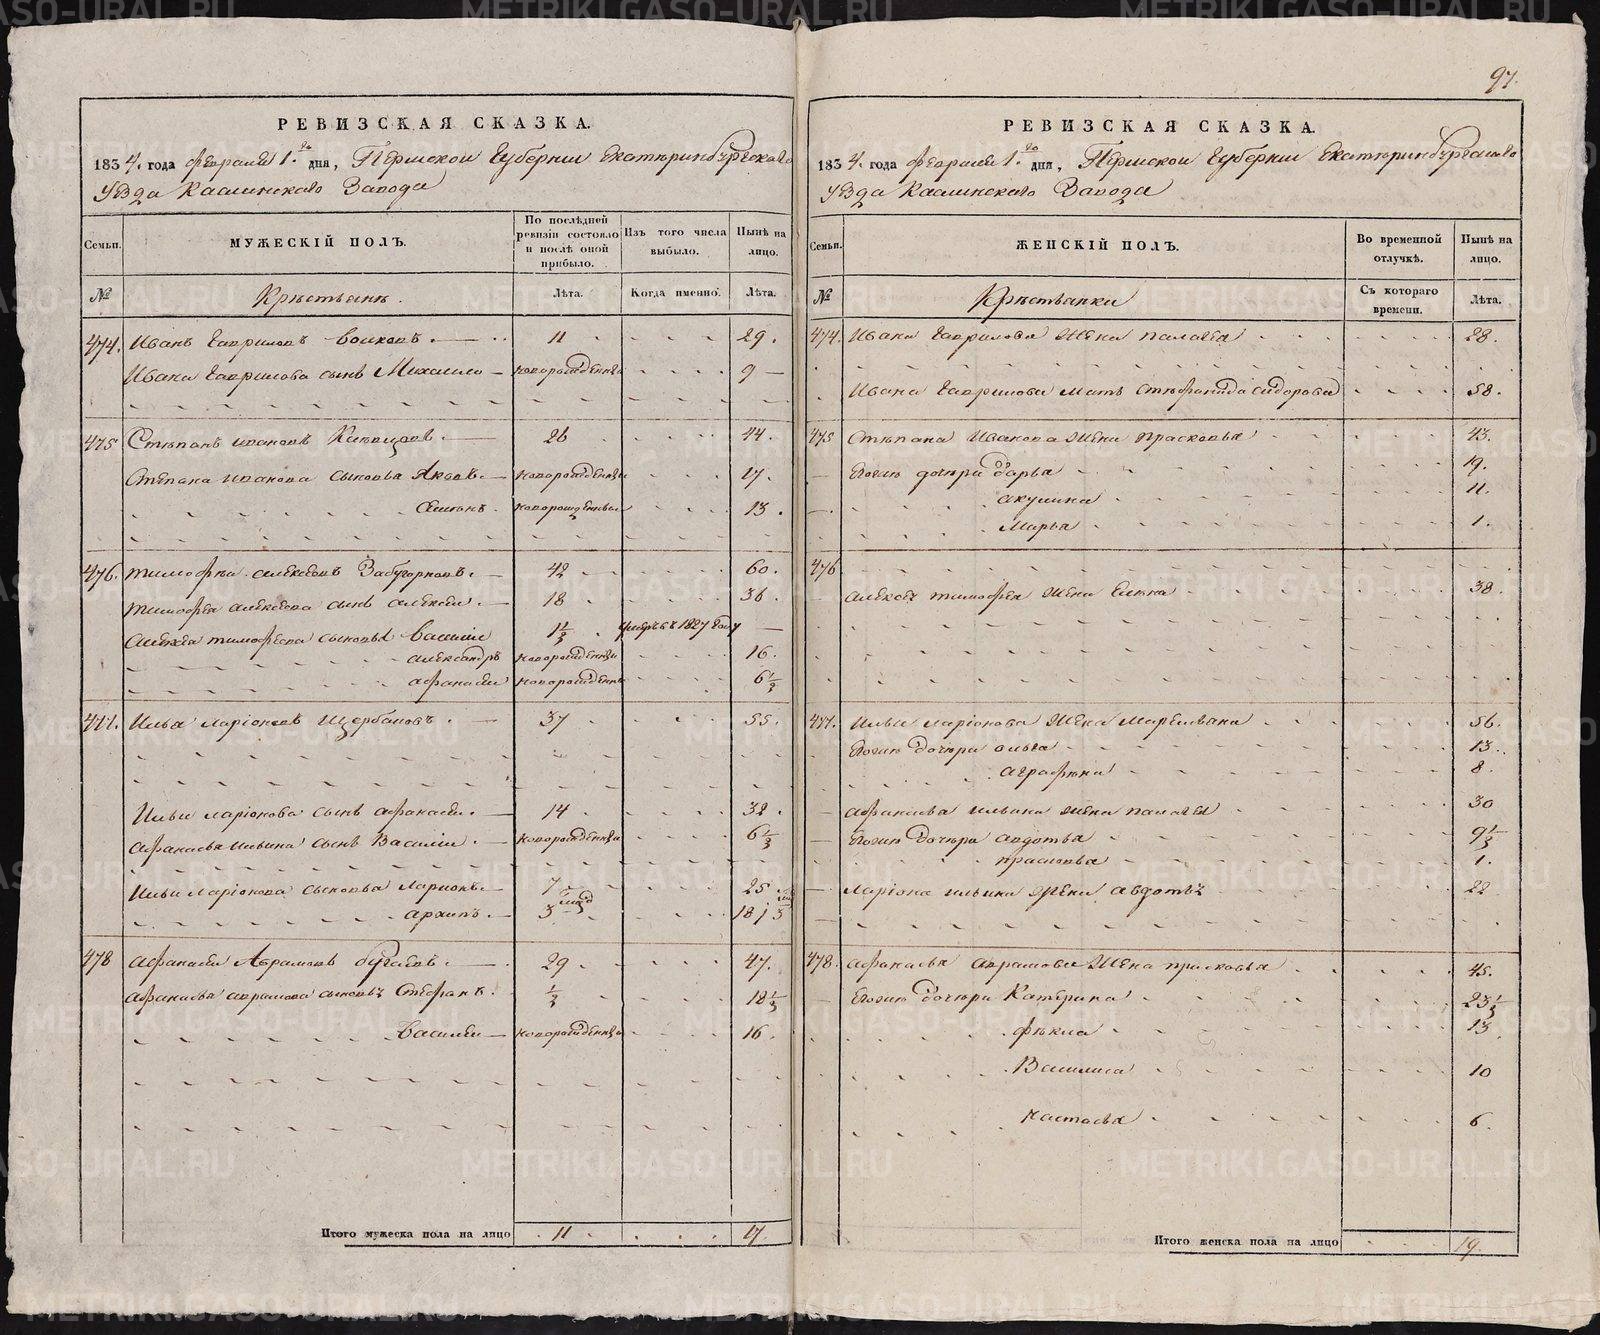 97.
РЕВИЗСКАЯ СКАЗКА.
1834. года февраля 1.го дня, Пермской Губернии Екатеринбургскаго
уезда Каслинскаго Завода
Семьи. МУЖЕСКІЙ ПОЛЪ. По послѣдней ревизіи состояло и послѣ оной прибыло. Изъ того числа выбыло. Нынѣ на лицо.
№ Крестьяне. Лѣта. Когда именно. Лѣта.
474. Иванъ Гавриловъ 11 29.
Ивана Гаврилова сынъ Михаило новорожденъ 9
475 Степанъ Ивановъ 26 44.
Степана Иванова сыновья Яковъ новорожденъ 17.
Семенъ новорожденъ 13.
476. Тимофей Алексеевъ Забугорновъ 42 60.
Тимофея Алексеева сынъ Алексей 18 36.
Алексея Тимофеева сыновья Василей 1½ умеръ въ 1827 году
Александръ новорожденъ 16.
Афанасей новорожденъ 6½
477. Илья Ларіоновъ Щербаковъ 37 55.
Ильи Ларіонова сынъ Афанасей. 14 32.
Афанасья Ильина сынъ Василей новорожденъ 6½
Ильи Ларіонова сыновья Ларионъ 7 25
Архипъ 3 18
478 Афанасей Аврамовъ 29 47.
Афанасья Аврамова сыновья Стефанъ. ½ 18½
Василей новорожденъ 16.
Итого мужеска пола на лицо 11 17.
РЕВИЗСКАЯ СКАЗКА.
1834. года февраля 1.го дня, Пермской Губернии Екатеринбургскаго
уезда Каслинскаго Завода
Семьи. ЖЕНСКІЙ ПОЛЪ. Во временной отлучкѣ. Нынѣ на лицо.
№ Крестьянки Съ котораго времени. Лѣта.
474. Ивана Гаврилова жена Палагея 28.
Ивана Гаврилова мать Стефанида Сидорова 58.
475 Степана Иванова жена Прасковья 43.
Егоже дочери Дарья 19.
Акулина 11.
Марья 1.
476
Алексея Тимофея жена Елена 38.
477. Ильи Ларіонова жена 56.
Егоже дочери Ольга 13.
Аграфена 8.
Афанасья Ильина жена Палагея 30
Егоже дочери Авдотья 9½
Прасковья 1.
Ларіона Ильина жена Авдотья 22
478. Афанасья Аврамова жена Прасковья 45.
Егоже дочери Катерина 23½
Фекла 13
Василиса 10
Настасья 6.
Итого женска пола на лицо 19.
METRIKI.GASO-URAL.RU